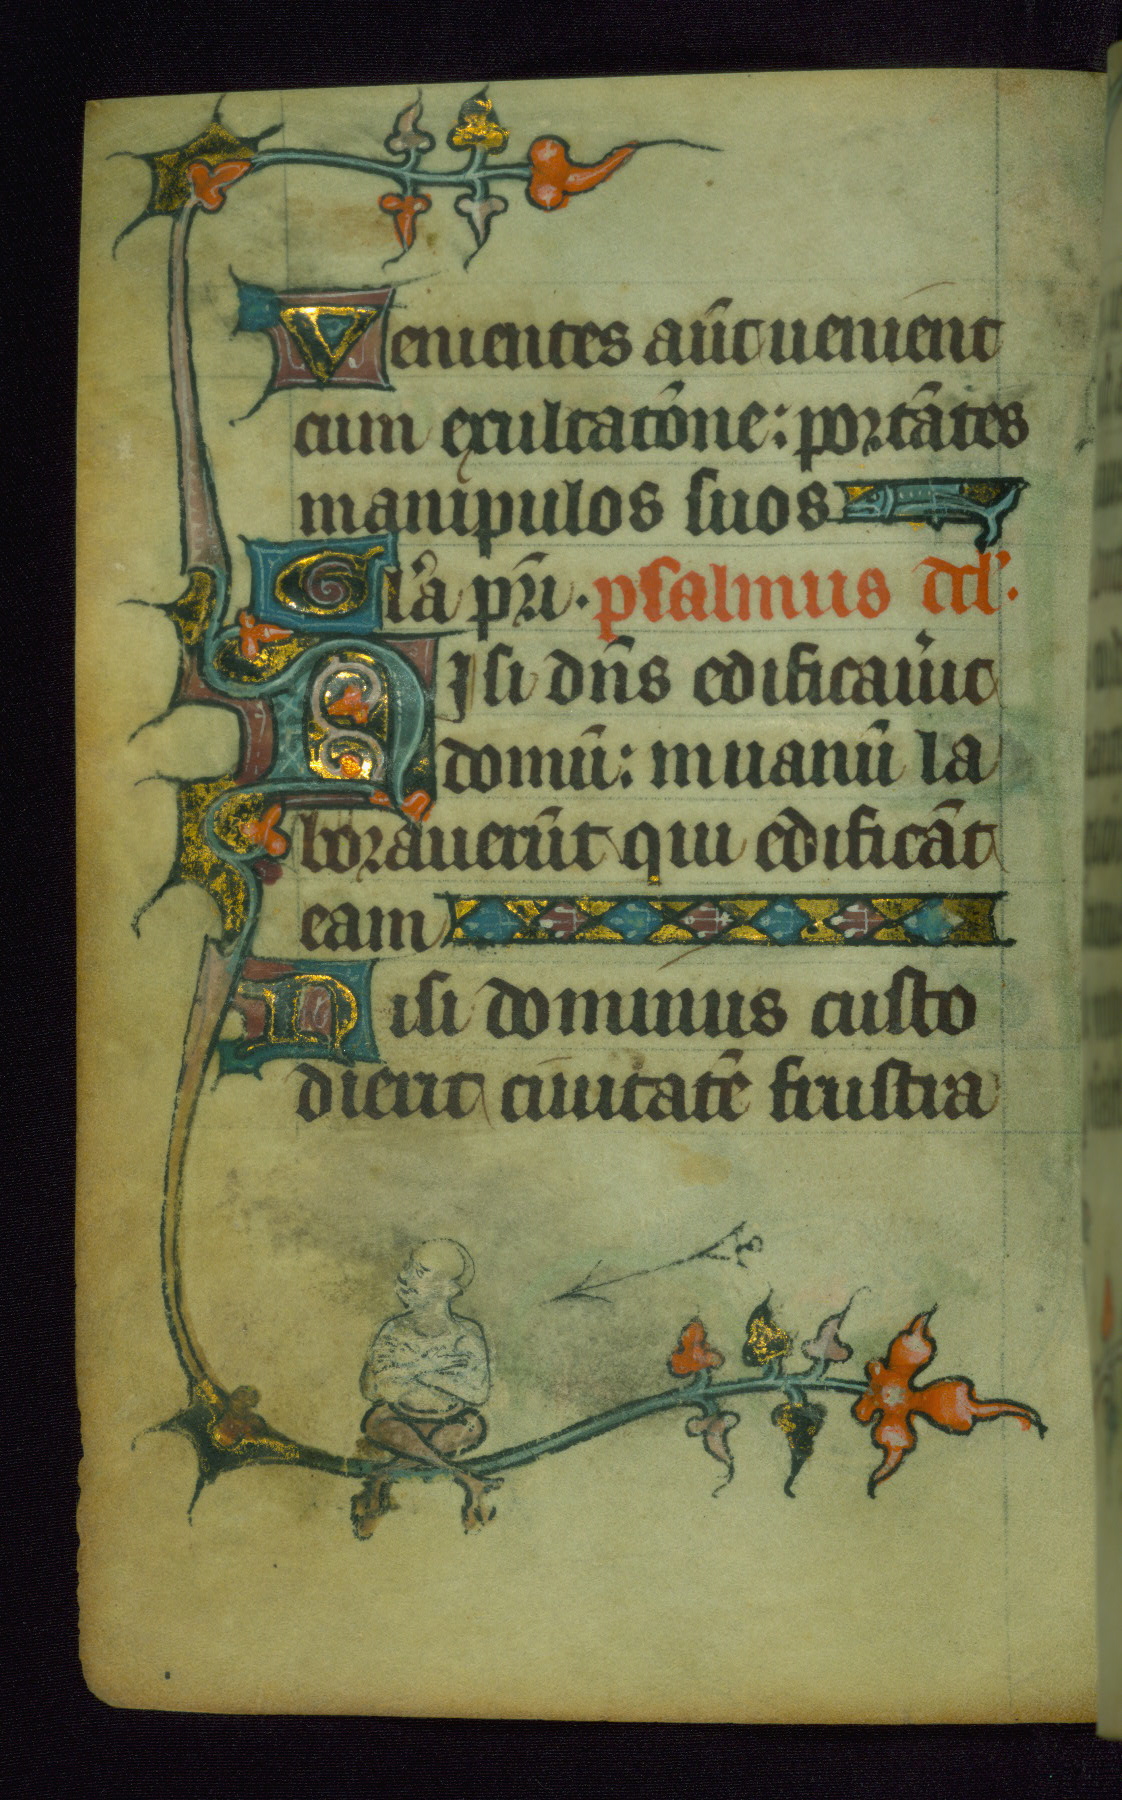 Uenientes aūt uenient
cum exultatōne: portātes
manipulos suos
Gla pri. psalmus dd.
Nisi dn̄s edificauit
domū: in uanū la
borauerūt qui edificāt
eam
Nisi dominus custo
dierit ciuitatē frustra